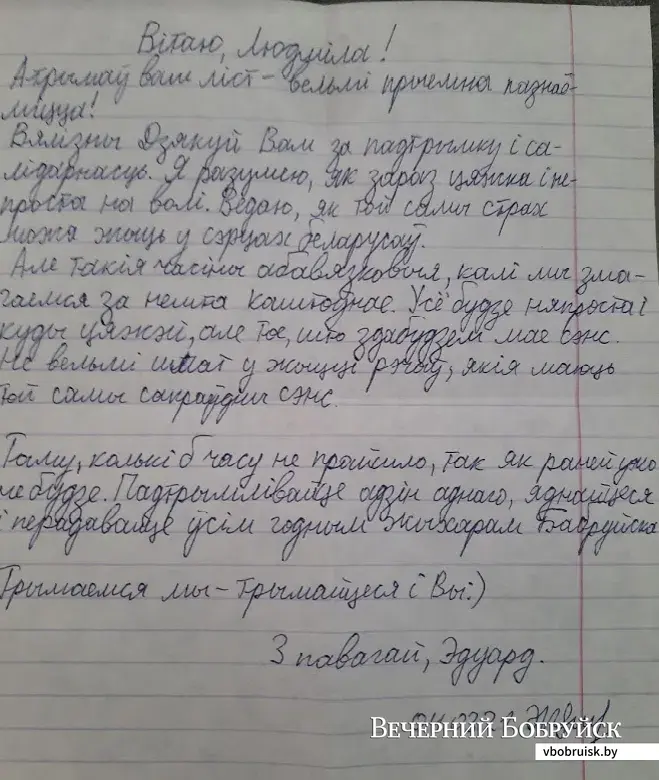 Вітаю, Людміла!
Атрымаў ваш ліст – вельмі прыемна пазнаё-
міцца!
Вялізны Дзякуй Вам за падтрымку і са-
лідарнасць. Я разумею, як зараз цяжка і не-
проста на волі. Ведаю, як той самы страх
можа жыць у сэрцах беларусаў.
Але такія часіны абавязковыя, калі мы зма-
гаемся за нешта каштоўнае. Усё будзе няпроста і
куды цяжэй, але тое, што здабудзем мае сэнс.
Не вельмі шмат у жыцці рэчаў, якія маюць
той самы сапраўдны сэнс.
Таму, колькі б часу не прайшло, так як раней ужо
не будзе. Падтрымлівайце адзін аднаго, яднайцеся
і перадавайце ўсім годным жыхарам Бабруйска
Трымаемся мы – трымайцеся і Вы:)
З павагай, Эдуард.
Вечерний Бобруйск
vbobruisk.by